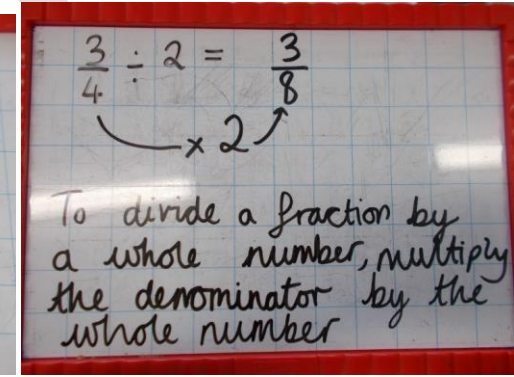 3/4 ÷ 2 = 3/8
× 2
To divide a fraction by
a whole number, multiply
the denominator by the
whole number